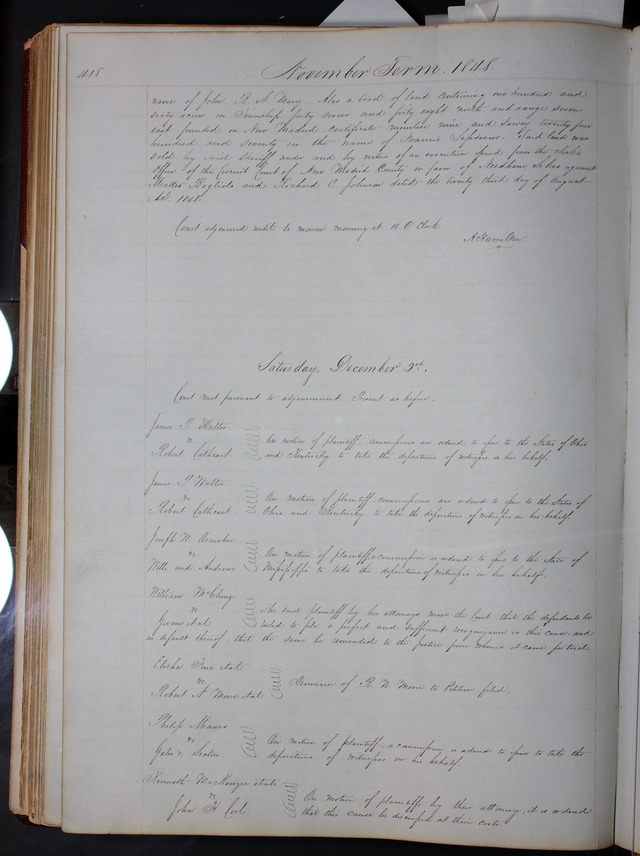 418
November Term. 1848.
name of John B. St Mary. Also a tract of land containing one hundred and
sixty acres in Township forty seven and forty eight north and range seven
east founded on New Madrid certificate number nine and survey twenty four
hundred and seventy in the name of Francis Said land was
sold by said Sheriff under and by virtue of an execution issued from the clerk's
office of the Circuit Court of New Madrid County in favor of against
and Richard C. Johnson dated the twenty third day of August
A.D. 1848.
Court adjourned until to morrow morning at 10 O'Clock.
A Hamilton
Saturday, December 2d.
Court met pursuant to adjournment Present as before.
James P. Walter
vs
Robert Cathcart
On motion of plaintiff, commissions are ordered to issue to the States of Ohio
and Kentucky to take the depositions of witnesses on his behalf.
James P. Walter
vs
Robert Cathcart
On motion of plaintiff, commissions are ordered to issue to the States of
Ohio and Kentucky to take the depositions of witnesses on his behalf.
Joseph W.
vs
and Andrews
On motion of plaintiff a commission is ordered to issue to the State of
Mississippi to take the depositions of witnesses on his behalf.
William McClung
vs
et al
The said plaintiff by his attorney moves the Court that the defendants be
ruled to file a perfect and sufficient recognizance in this cause and
in default thereof, that the same be remanded to the Justice from whence it came for trial.
Elisha et al
vs
Robert N Moore et al
Demurrer of R. N Moore to Petition filed.
Philip
vs
Gales & Seaton
On motion of plaintiff, a commission is ordered to issue to take the
depositions of witnesses on his behalf.
Kenneth MacKenzie et als
vs
John H.
On motion of plaintiffs by their attorney, it is ordered
that this cause be dismissed at their costs.